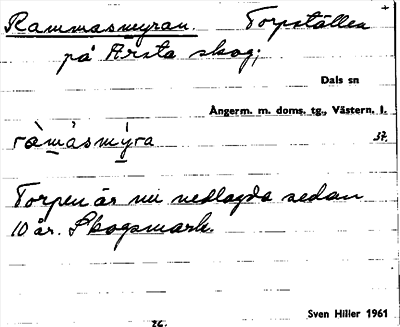 Rammasmyran. Torpställen
på Årsta skog;
Dals sn
Ångerm. m. doms. tg., Västern. l.
ràmásmýra 37.
Torpen är nu nedlagda sedan
10 år. Skogsmark.
Sven Hiller 1961
26.